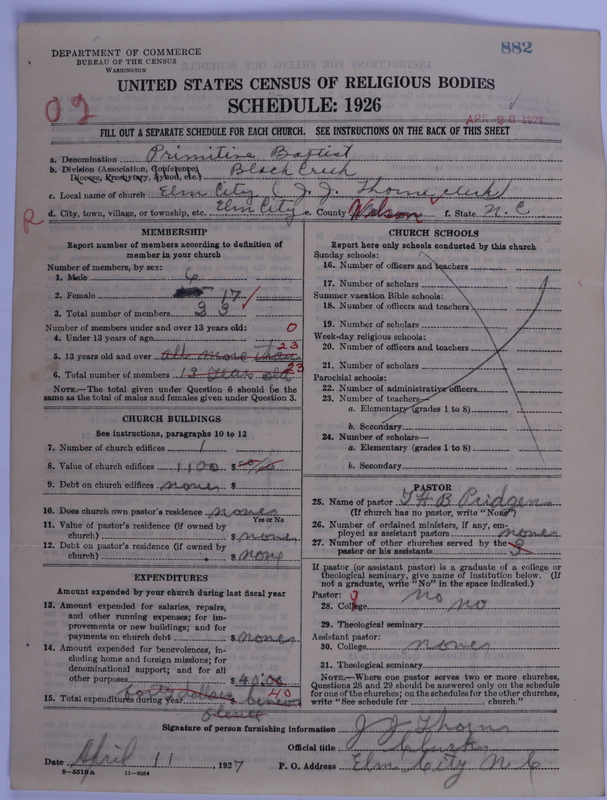 882
DEPARTMENT OF COMMERCE
BUREAU OF THE CENSUS
WASHINGTON
UNITED STATES CENSUS OF RELIGIOUS BODIES
SCHEDULE: 1926
APR 26 1927
FILL OUT A SEPARATE SCHEDULE FOR EACH CHURCH. SEE INSTRUCTIONS ON THE BACK OF THIS SHEET
a. Denomination Primitive Baptist
b. Division (Association, Conference, Diocese, Presbytery, Synod, etc.) Black Creek
c. Local name of church Elm City (J. J. Thorne clerk)
d. City, town, village, or township, etc. Elm City e. County Wilson f. State N. C.
R
MEMBERSHIP
Report number of members according to definition of
member in your church
Number of members, by sex:
1. Male 6
2. Female 17
3. Total number of members 23
Number of members under and over 13 years old:
4. Under 13 years of age 0
5. 13 years old and over all more than 23
6. Total number of members 13 years old 23
NOTE.—The total given under Question 6 should be the
same as the total of males and females given under Question 3.
CHURCH BUILDINGS
See instructions, paragraphs 10 to 12
7. Number of church edifices 1
8. Value of church edifices 1100 $
9. Debt on church edifices none $
10. Does church own pastor's residence none
Yes or No
11. Value of pastor's residence (if owned by
church) $ none
12. Debt on pastor's residence (if owned by
church) $ none
EXPENDITURES
Amount expended by your church during last fiscal year
13. Amount expended for salaries, repairs,
and other running expenses; for im-
provements or new buildings; and for
payments on church debt $ none
14. Amount expended for benevolences, in-
cluding home and foreign missions; for
denominational support; and for all
other purposes $ 40.00
15. Total expenditures during year forty dollars $ 40
CHURCH SCHOOLS
Report here only schools conducted by this church
Sunday schools:
16. Number of officers and teachers
17. Number of scholars
Summer vacation Bible schools:
18. Number of officers and teachers
19. Number of scholars
Week-day religious schools:
20. Number of officers and teachers
21. Number of scholars
Parochial schools:
22. Number of administrative officers
23. Number of teachers—
a. Elementary (grades 1 to 8)
b. Secondary
24. Number of scholars—
a. Elementary (grades 1 to 8)
b. Secondary
PASTOR
25. Name of pastor T H B Pridgen
(If church has no pastor, write "None")
26. Number of ordained ministers, if any, em-
ployed as assistant pastors none
27. Number of other churches served by the
pastor or his assistants 3
If pastor (or assistant pastor) is a graduate of a college or
theological seminary, give name of institution below. (If
not a graduate, write "No" in the space indicated.)
Pastor: no
28. College no
29. Theological seminary
Assistant pastor:
30. College none
31. Theological seminary
NOTE.—Where one pastor serves two or more churches,
Questions 28 and 29 should be answered only on the schedule
for one of the churches; on the schedules for the other churches,
write "See schedule for church."
Signature of person furnishing information J J Thorne
Official title Clerk
Date April 11, 1927 P. O. Address Elm City N C
8—5518a 11—9054